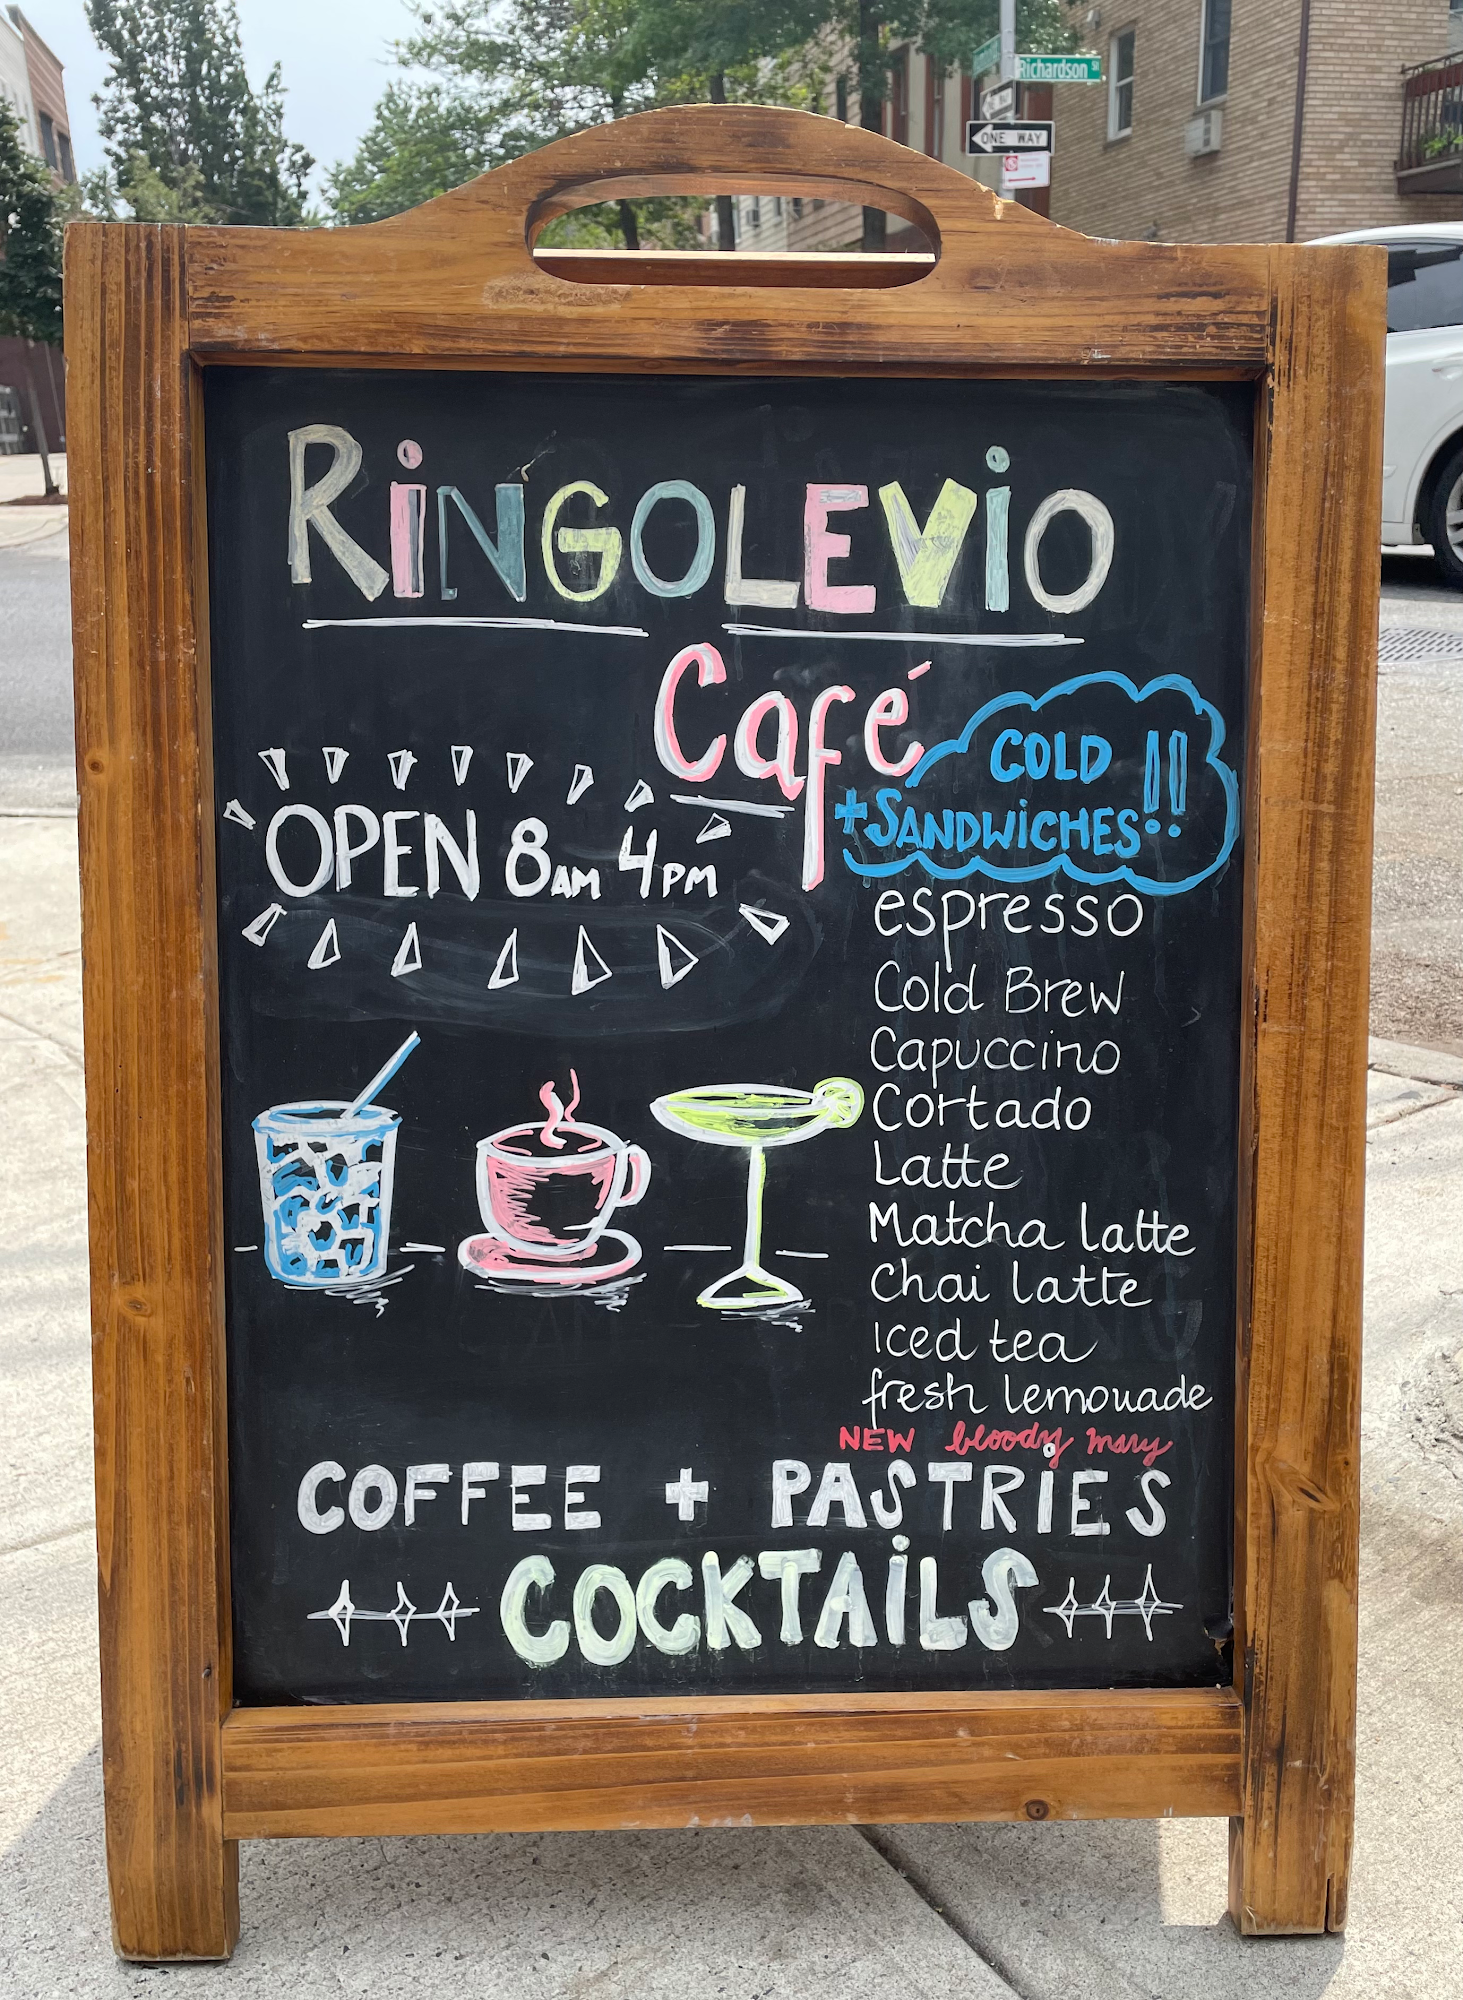 Richardson St
ONE WAY
RiNGOLEViO
Café
COLD
+SANDWiCHES!!
OPEN 8AM 4PM
espresso
Cold Brew
Capuccino
Cortado
Latte
Matcha latte
Chai latte
Iced tea
fresh lemouade
NEW bloody mary
COFFEE + PASTRiES
COCKTAiLS